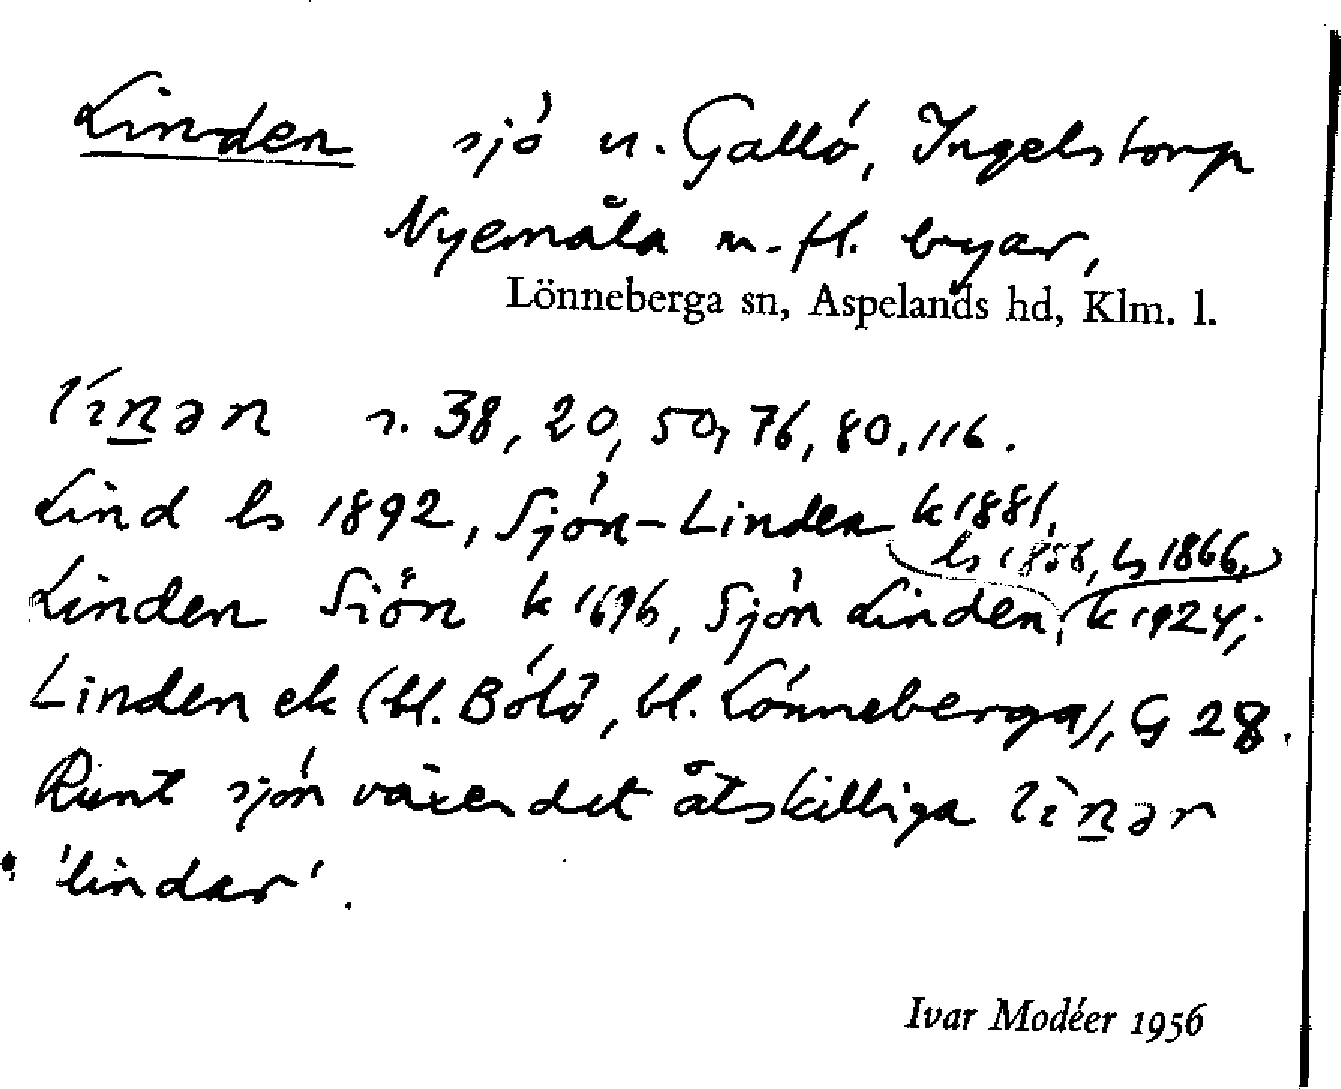 Linden sjö u. Gallö, Ingelstorp
Nyemåla m. fl. byar,
Lönneberga sn, Aspelands hd, Klm. l.
línən s. 38, 20, 50, 76, 80, 116.
Lind ls 1892, Sjön-Linden k 1881,
ls 1858, ls 1866,
Linden Siön k 1696, Sjön Linden, k 1924;
Linden ek (bl. Bölö, bl. Lönneberga), G 28.
Runt sjön växer det åtskilliga lìnər
'lindar'.
Ivar Modéer 1956